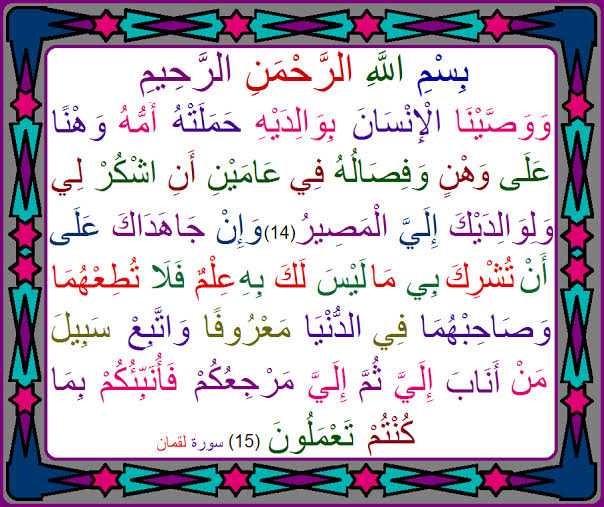 بِسْمِ اللَّهِ الرَّحْمَنِ الرَّحِيمِ
وَوَصَّيْنَا الْإِنْسَانَ بِوَالِدَيْهِ حَمَلَتْهُ أُمُّهُ وَهْنًا
عَلَى وَهْنٍ وَفِصَالُهُ فِي عَامَيْنِ أَنِ اشْكُرْ لِي
وَلِوَالِدَيْكَ إِلَيَّ الْمَصِيرُ (14) وَإِنْ جَاهَدَاكَ عَلَى
أَنْ تُشْرِكَ بِي مَا لَيْسَ لَكَ بِهِ عِلْمٌ فَلَا تُطِعْهُمَا
وَصَاحِبْهُمَا فِي الدُّنْيَا مَعْرُوفًا وَاتَّبِعْ سَبِيلَ
مَنْ أَنَابَ إِلَيَّ ثُمَّ إِلَيَّ مَرْجِعُكُمْ فَأُنَبِّئُكُمْ بِمَا
كُنْتُمْ تَعْمَلُونَ (15) سورة لقمان